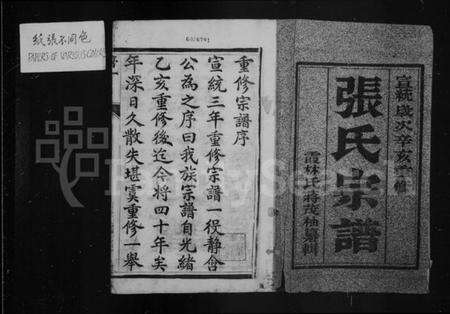 紙張不同色
PAPERS OF VARIOUS COLORS
宣統歲次辛亥重輯
張氏宗譜
重修宗譜序
宣統三年重修宗譜一役靜會
公為之序曰我族宗譜自光緒
乙亥重修後迄今將四十年矣
年深日久散失堪虞重修一舉